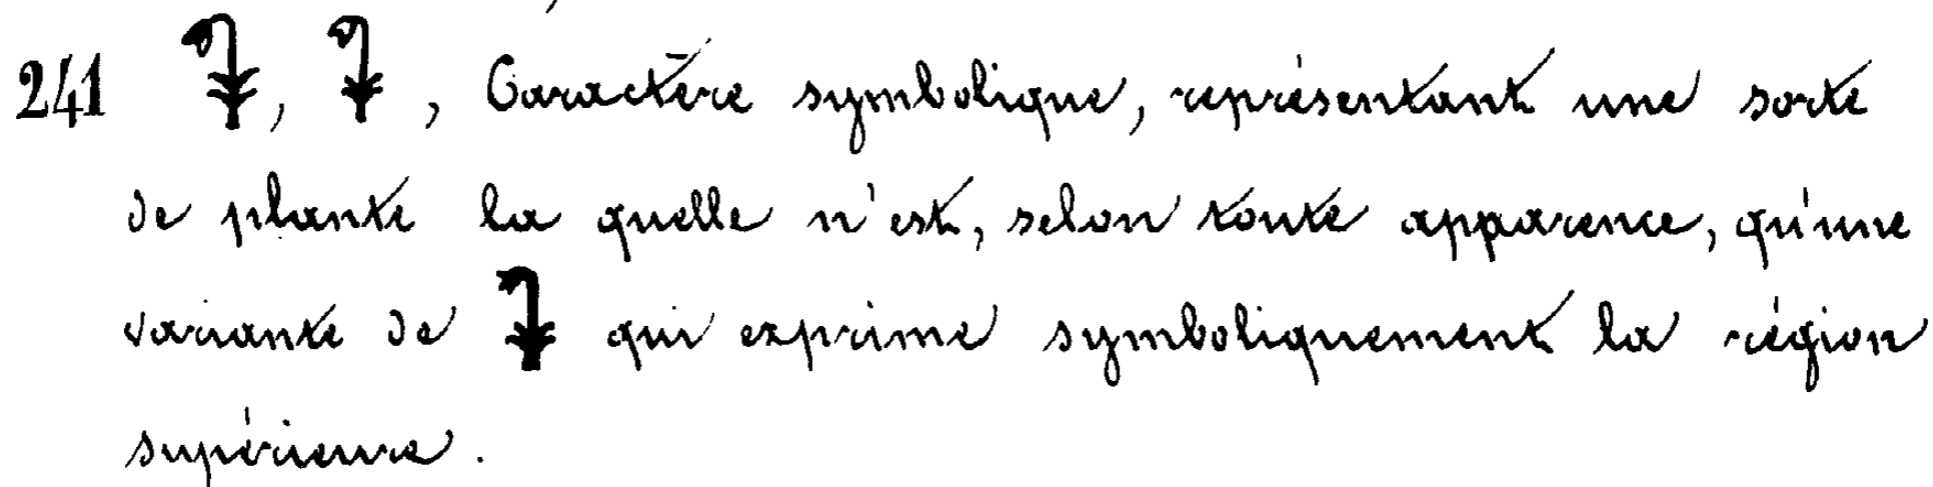 241 , , Caractère symbolique, représentant une sorte
de plante la quelle n'est, selon toute apparence, qu'une
variante de qui exprime symboliquement la région
supérieure.